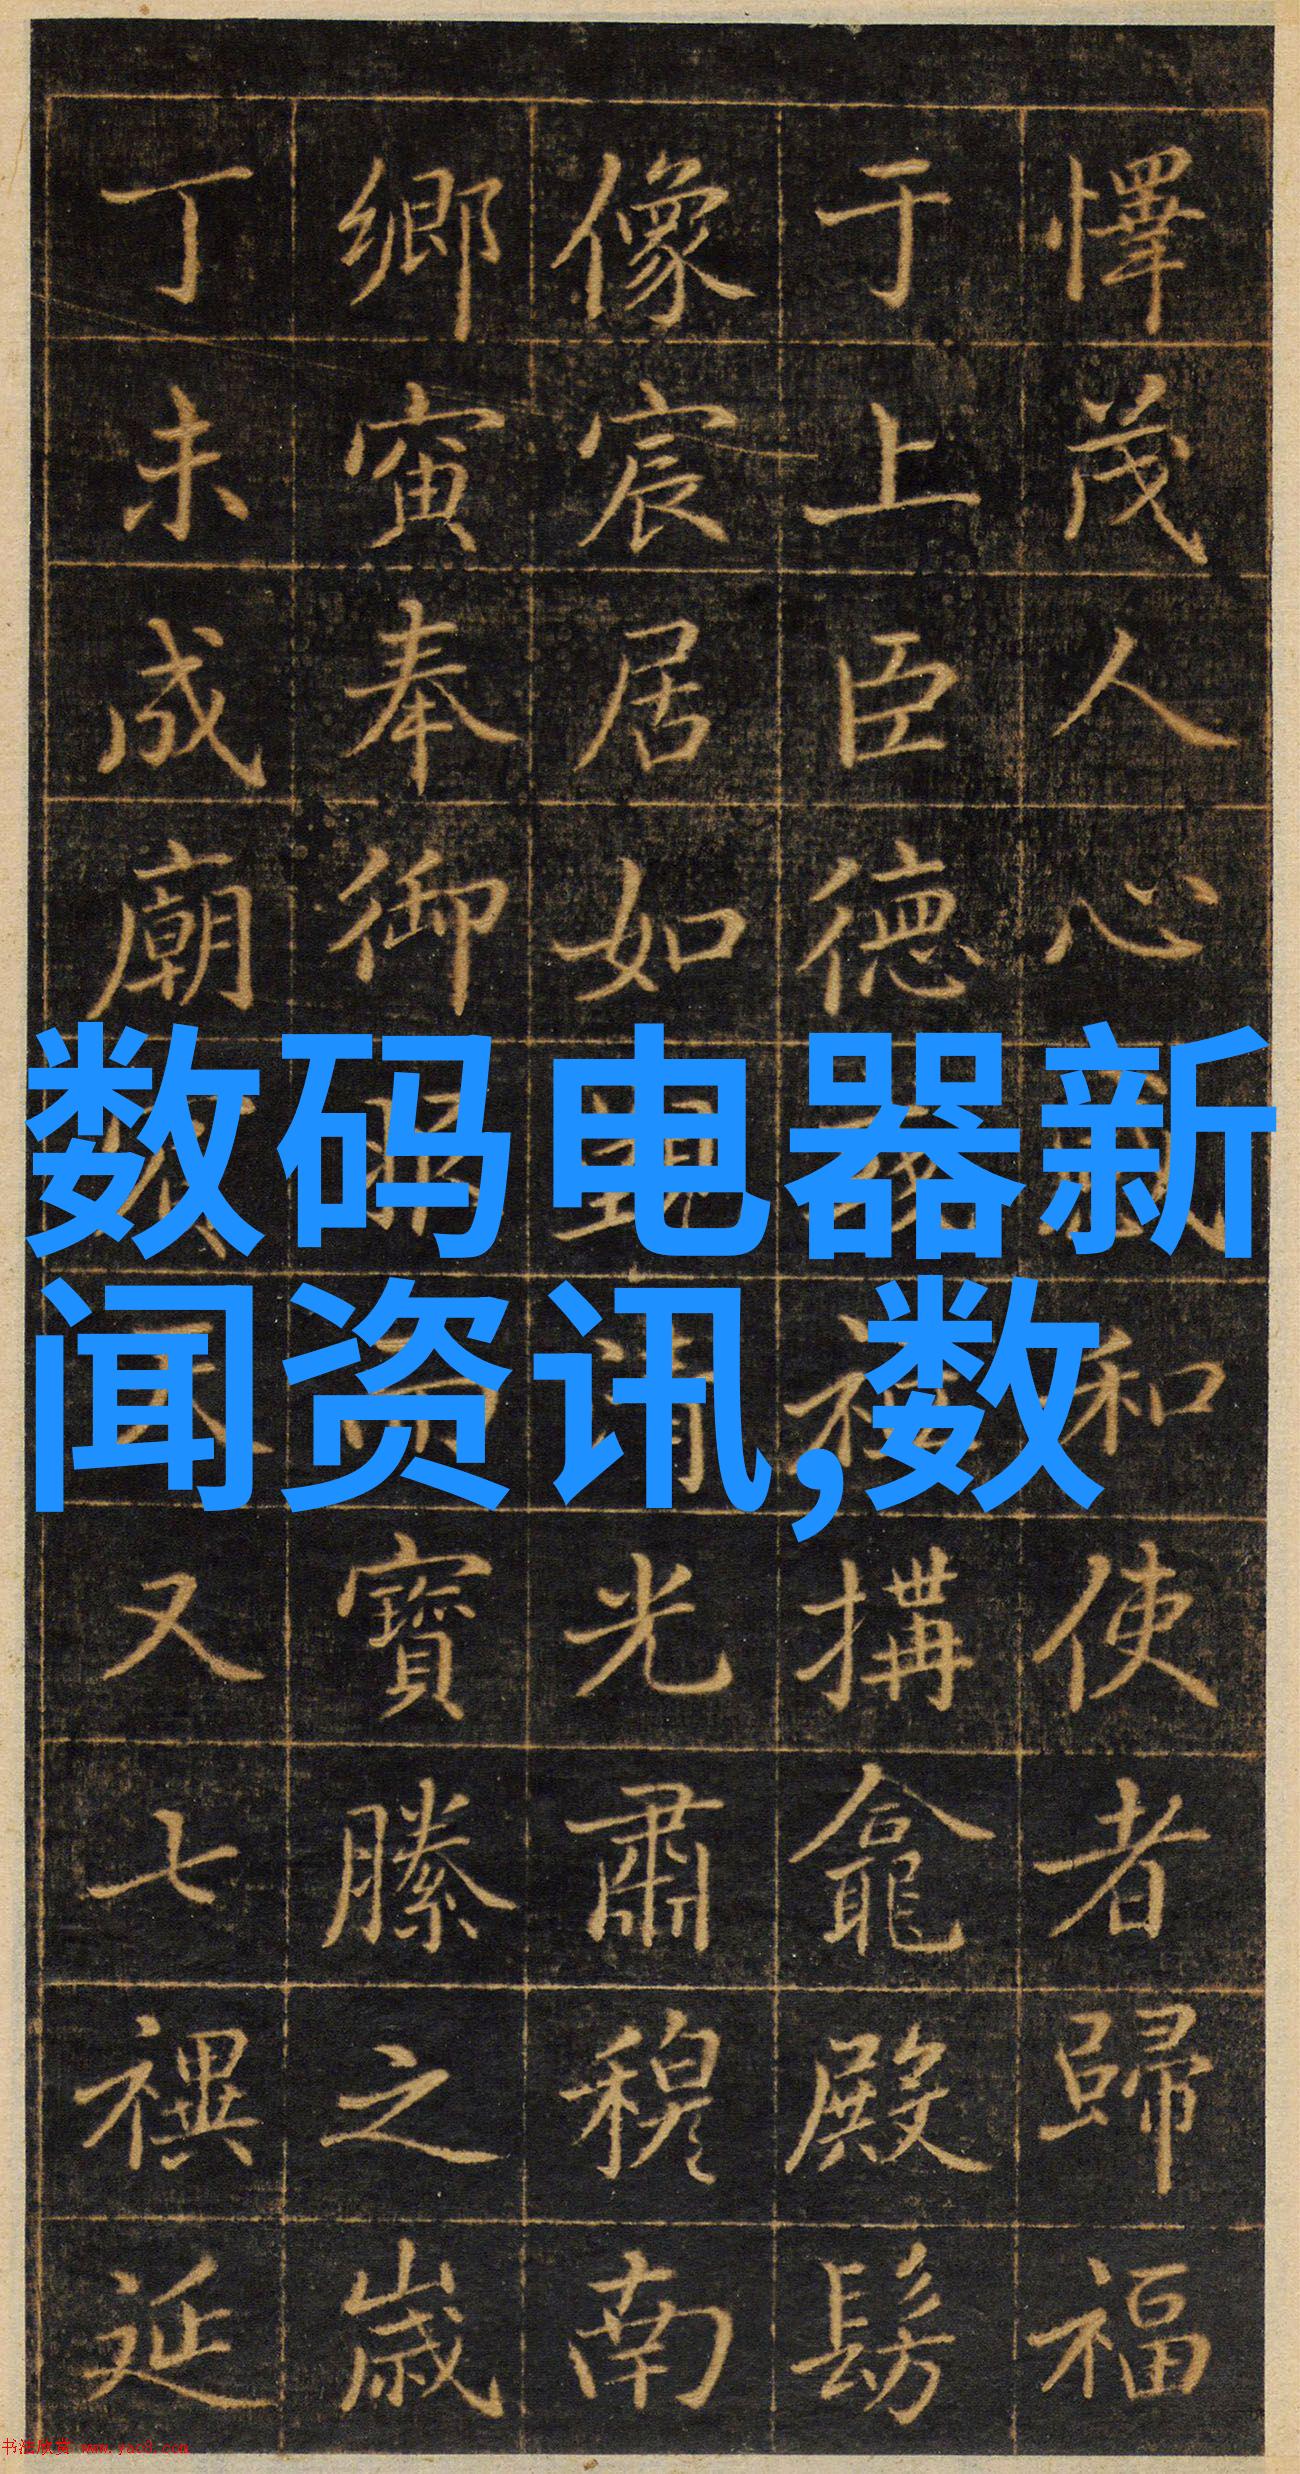 懌茂人心和使者歸福
于上臣德搆龕殿髣
像宸居如光肅穆南
鄉寅奉御寶縢之歲
丁未成廟又七禩延
数码电器新
闻资讯,数
书法欣赏 www.yac8.com